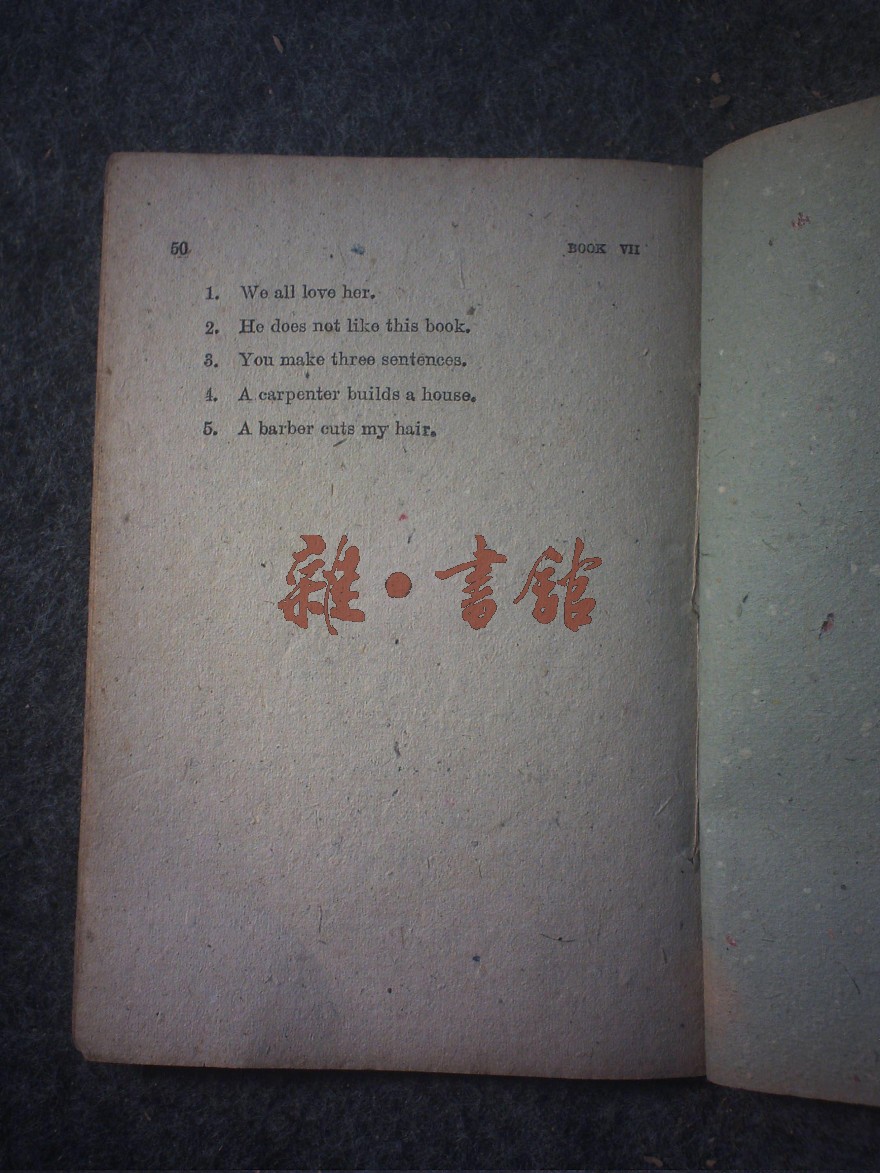 50 BOOK VII
1. We all love her.
2. He does not like this book.
3. You make three sentences.
4. A carpenter builds a house.
5. A barber cuts my hair.
雜·書館